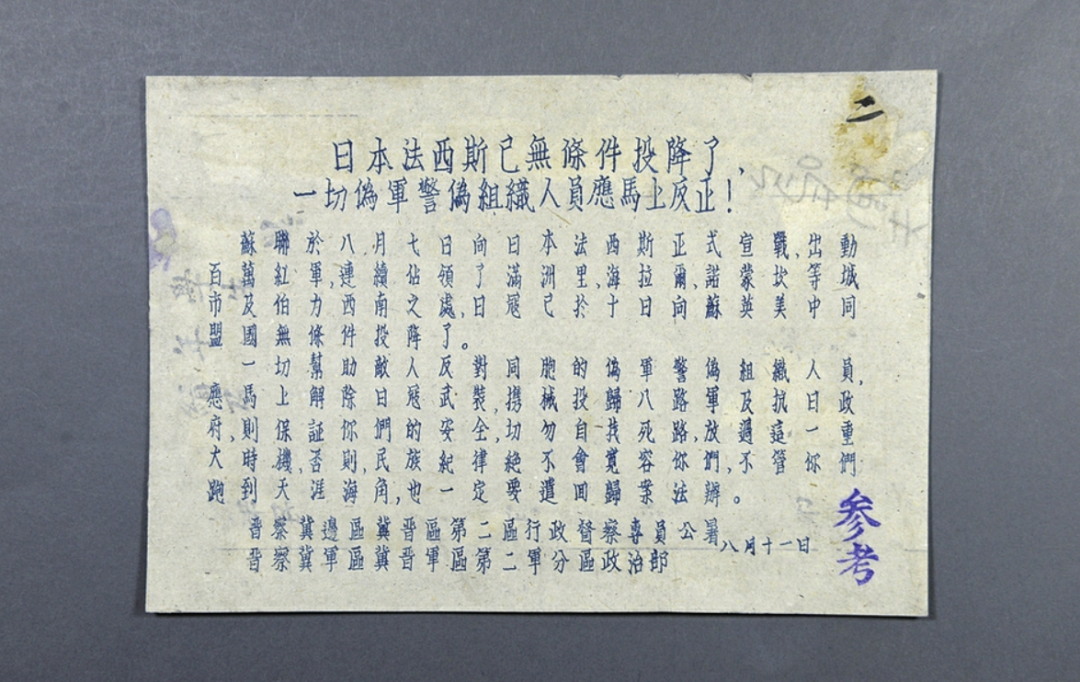 二
日本法西斯已無條件投降了,
一切偽軍警偽組織人員應馬上反正!
蘇聯於八月七日向日本法西斯正式宣戰,出動
百萬紅軍,連續佔領了滿洲里,海拉爾,諾蒙坎等城
市及伯力西南之處,日寇已於十日向蘇英美中同
盟國無條件投降了。
一切幫助敵人反對同胞的偽軍警偽組織人員,
應馬上解除日寇武裝,携械投歸八路軍及抗日政
府,則保証你們的安全,切勿自找死路,放過這一重
大時機,否則民族紀律絕不會寬容你們,不管你們
跑到天涯海角,也一定要遣回歸案法辦。
晋察冀邊區冀晋區第二區行政督察專員公署
晋察冀軍區冀晋軍區第二軍分區政治部
八月十一日
参考